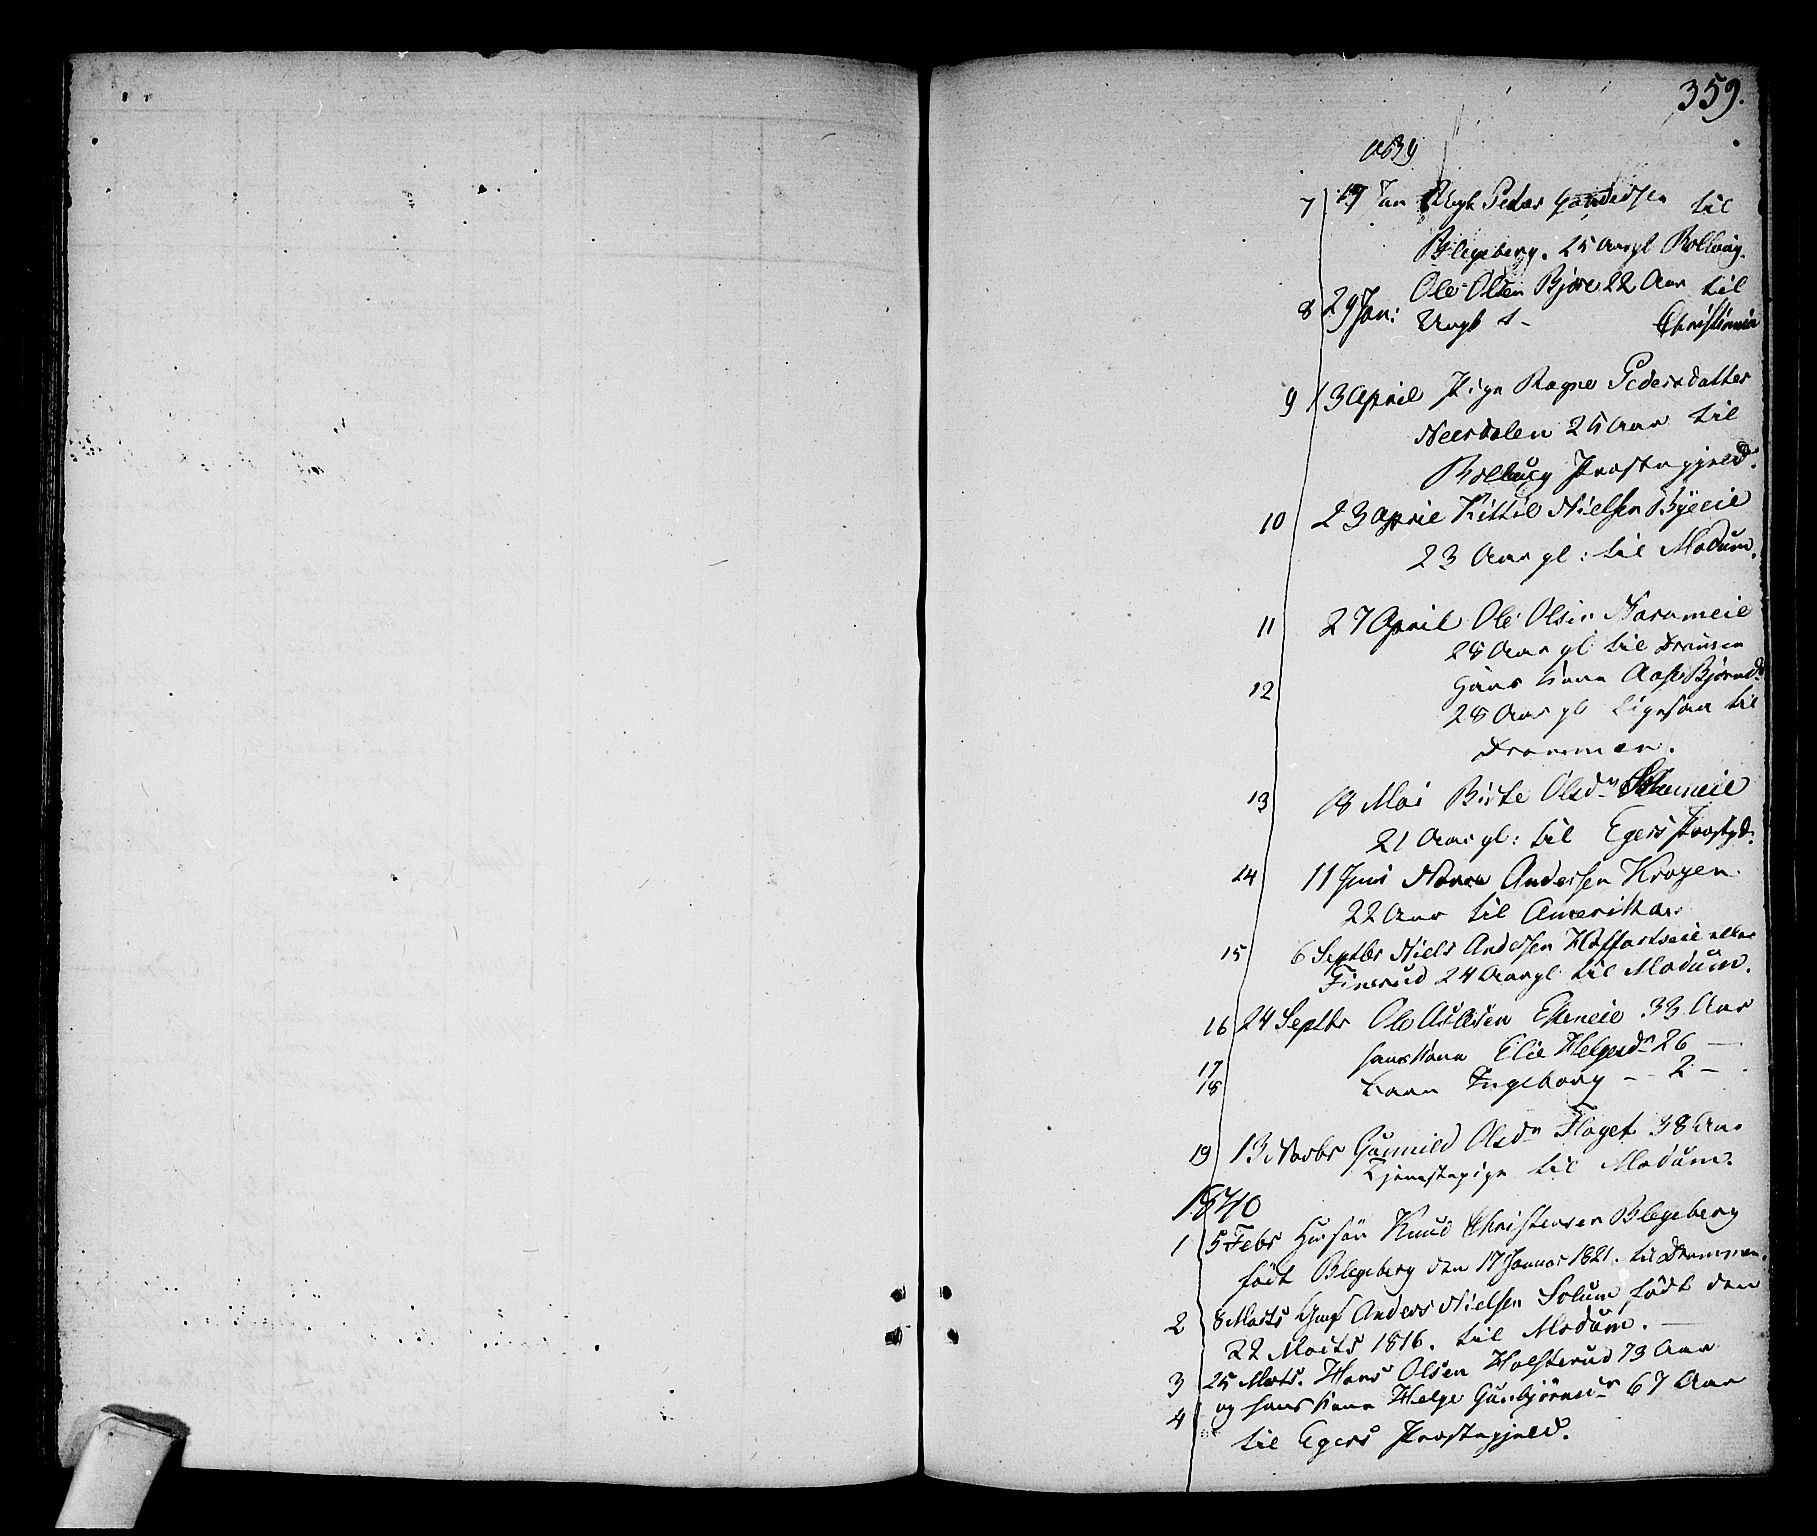 359.
1839
7 17 Jan Ungk Peder til
Blegeberg. 25 Aar gl Rollaug.
8 29 Jan: Ole Olsen Bjøre 22 Aar til
Ungk Christiania
9 13 April Pige Ragne Pedersdatter
25 Aar til
Præstegjeld.
10 23 April Kittil Nielsen Byeeie
23 Aar gl: til Modum.
11 27 April Ole Olsen
28 Aar gl til Dramen
12 Hans Kone Aase Bjørnsd
28 Aar gl Ligesaa til
Drammen.
13 18 Mai Birte Olsdr
21 Aar gl: til Egers Præstgd.
14 11 Juni Andersen Kragen.
22 Aar til Amerika.
15 6 Septbr Niels Andersen Haffartseie eller
Finerud 24 Aar gl til Modum.
16 24 Septbr Ole Aslesen 33 Aar
17 hans Kone Elie Helgesdr 26 —
18 Barn Ingeborg - 2 -
19 13 Novbr Gunnild Olsdr Flaget 38 Aar
Tjenestepige til Modum.
1840
1 5 Febr Huusøn Knud Christensen Blegeberg
født Blegeberg den 17 Januar 1821. til Drammen.
2 8 Marts Anders Nielsen Solum født den
22 Marts 1816. til Modum. —
3 25 Marts. Hans Olsen Holsterud 73 Aar
4 og hans Kone Helge Gunbjørnsdr 67 Aar
til Egers Præstegjeld.